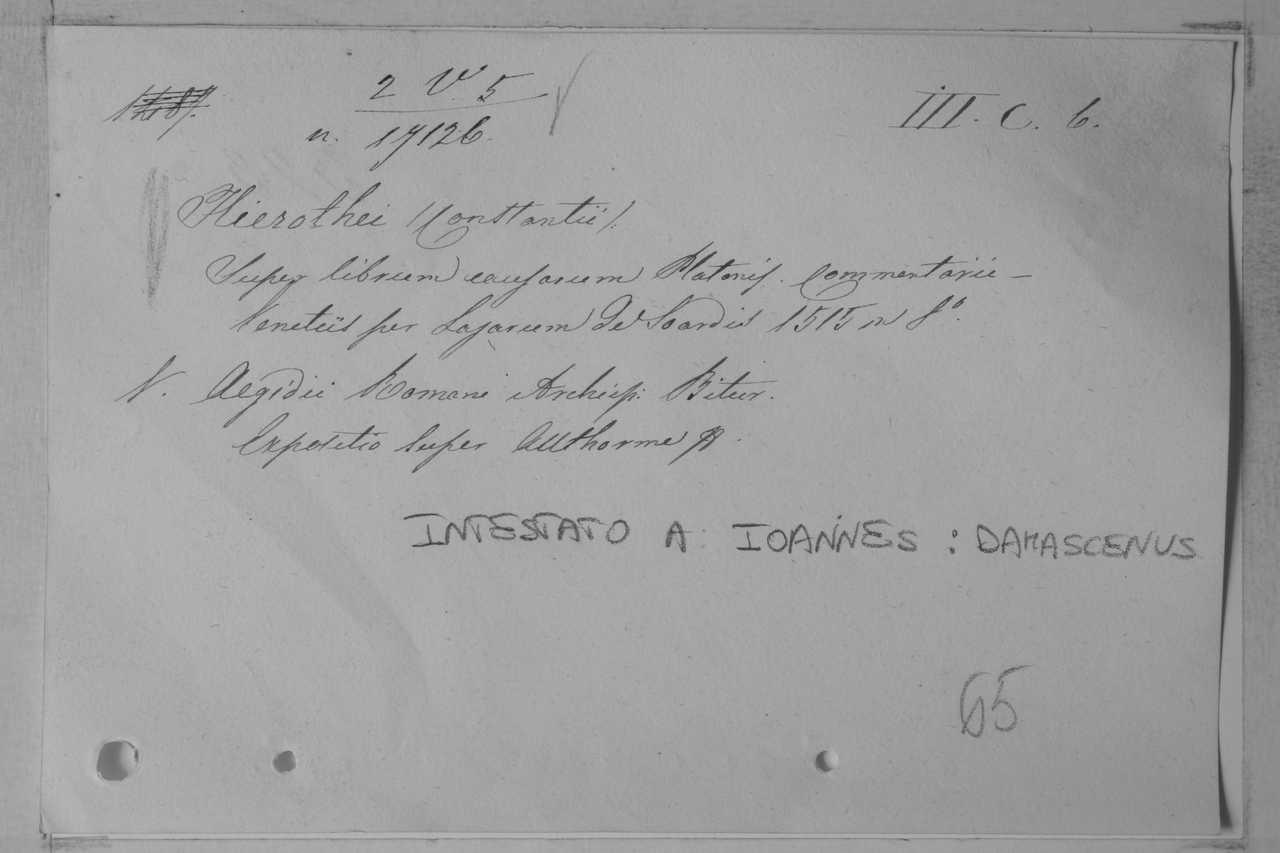 2 V. 5
n. 17126.
III. C. 6.
Hierothei (Constantii).
Super librum causarum Platonis. Commentarii –
Venetiis per Lazarum de Soardis 1515 in 8º.
V. Aegidii Romani Archiep. Bitur.
Expositio super Authorem
INTESTATO A IOANNES : DAMASCENUS
65